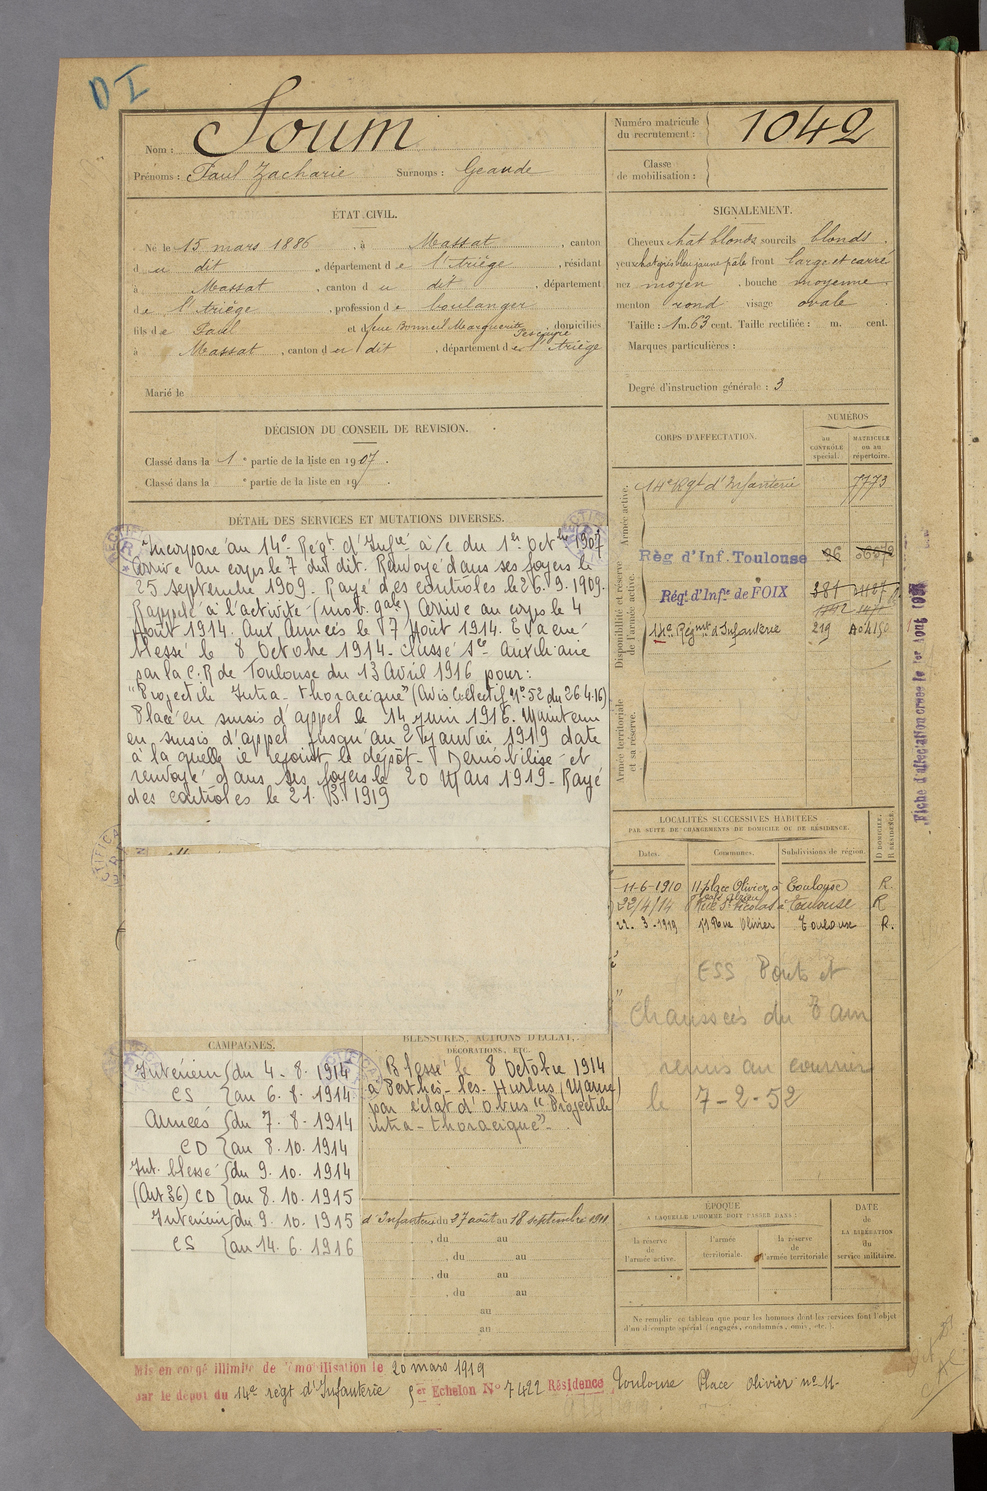 D I
Nom : Soum
Prénoms : Paul Zacharie Surnoms : Geande
Numéro matricule du recrutement : 1042
Classe de mobilisation :
ÉTAT CIVIL.
Né le 15 mars 1886, à Massat, canton
du dit, département de l'Ariège, résidant
à Massat, canton du dit, département
de l'Ariège, profession de boulanger
fils de Paul et de feue Bonneil Marguerite, domiciliés
à Massat, canton du dit, département de l'Ariège
Marié le
SIGNALEMENT.
Cheveux chat blonds sourcils blonds.
yeux front large et carré
nez moyen, bouche moyenne
menton rond visage ovale
Taille : 1 m. 63 cent. Taille rectifiée : m. cent.
Marques particulières :
Degré d'instruction générale : 3
DÉCISION DU CONSEIL DE REVISION.
Classé dans la 1e partie de la liste en 1907.
Classé dans la e partie de la liste en 19
CORPS D'AFFECTATION.
NUMÉROS
au CONTRÔLE spécial.
MATRICULE ou au répertoire.
Armée active.
14e Rgt d'Infanterie 7773
Disponibilité et réserve de l'armée active.
Règ d'Inf. Toulouse
Régt d'Infie de FOIX
14e Régmt d'Infanterie 219
Armée territoriale et sa réserve.
DÉTAIL DES SERVICES ET MUTATIONS DIVERSES.
Incorporé au 14e Regt d'Infie à/c du 1er Octbre 1907
Arrivé au corps le 7 du dit. Renvoyé dans ses foyers le
25 septembre 1909. Rayé des contrôles le 26.9.1909.
Rappelé à l'activité (mob. gale) Arrivé au corps le 4
Août 1914. Aux Armées le 7 Août 1914. Evacué
blessé le 8 Octobre 1914. Classé Sce Auxiliaire
par la C.R de Toulouse du 13 Avril 1916 pour :
"Projectile Intra-thoracique" (Avis Collectif No 52 du 26.4.16)
Placé en sursis d'appel le 14 juin 1916. Maintenu
en sursis d'appel jusqu'au 2 janvier 1919 date
à laquelle il rejoint le dépôt. Démobilisé et
renvoyé dans ses foyers le 20 Mars 1919. Rayé
des contrôles le 21.3.1919
LOCALITÉS SUCCESSIVES HABITÉES
PAR SUITE DE CHANGEMENTS DE DOMICILE OU DE RÉSIDENCE.
Dates. Communes. Subdivisions de région. D. DOMICILE. R. RÉSIDENCE.
11-6-1910 11 place Olivier à Toulouse R.
22/4/14 8 Rue St Nicolas à Toulouse R
22.3.1919 11 Rue Olivier Toulouse R.
ESS Ponts et
Chaussées du
remis au courrier
le 7-2-52
Fiche d'affectation créée le 1er Août 1927
CAMPAGNES.
Intérieur du 4.8.1914
CS au 6.8.1914
Armées du 7.8.1914
CD au 8.10.1914
Int. blessé du 9.10.1914
(Art 36) CD au 8.10.1915
Intérieur du 9.10.1915
CS au 14.6.1916
BLESSURES, ACTIONS D'ÉCLAT,
DÉCORATIONS, ETC.
Blessé le 8 Octobre 1914
à Perthes-les-Hurlus (Marne)
par éclat d'obus "Projectile
intra-thoracique".
d'Infanterie du 27 août au 18 septembre 1911
, du au
, du au
, du au
, du au
au
au
ÉPOQUE
A LAQUELLE L'HOMME DOIT PASSER DANS :
la réserve de l'armée active.
l'armée territoriale.
la réserve de l'armée territoriale
DATE de LA LIBÉRATION du service militaire.
Ne remplir ce tableau que pour les hommes dont les services font l'objet
d'un décompte spécial (engagés, condamnés, omis, etc.).
Mis en congé illimité de démobilisation le 20 mars 1919
par le dépôt du 14e régt d'Infanterie 5er Echelon No 7422 Résidence Toulouse Place Olivier no 11.